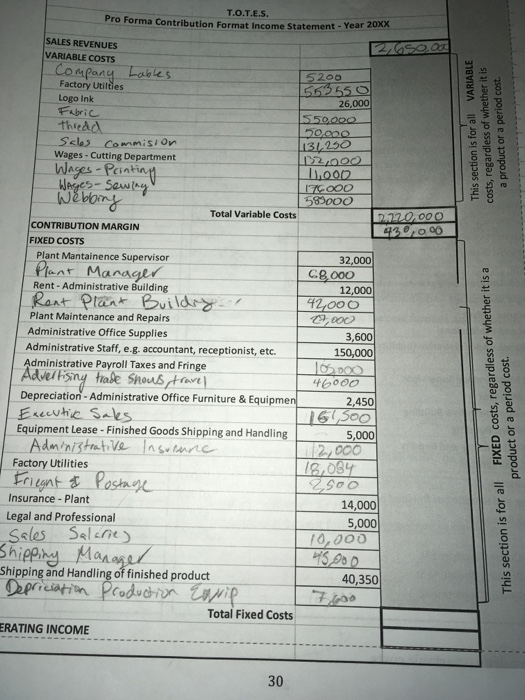 T.O.T.E.S.
Pro Forma Contribution Format Income Statement - Year 20XX
SALES REVENUES 2,650,000
VARIABLE COSTS
Company Lables 5200
Factory Utilties 553550
Logo Ink 26,000
Fabric 550,000
thredd 50,000
Sales commision 131,250
Wages - Cutting Department 132,000
Wages - Printing 11,000
Wages - Sewing 176000
Webbing 585000
Total Variable Costs 2,220,000
CONTRIBUTION MARGIN 430,000
FIXED COSTS
Plant Mantainence Supervisor 32,000
Plant Manager 68,000
Rent - Administrative Building 12,000
Rent Plant Buildng 42,000
Plant Maintenance and Repairs
Administrative Office Supplies 3,600
Administrative Staff, e.g. accountant, receptionist, etc. 150,000
Administrative Payroll Taxes and Fringe 105000
Advertising trade shows, travel 46000
Depreciation - Administrative Office Furniture & Equipmen 2,450
Executie Sales 161,500
Equipment Lease - Finished Goods Shipping and Handling 5,000
Administrative Insurance 12,000
Factory Utilities 18,084
Frieght & Postage 2500
Insurance - Plant 14,000
Legal and Professional 5,000
Sales Salaries 10,000
Shipping Manager 45,000
Shipping and Handling of finished product 40,350
Depriciation Production Equip 7,600
Total Fixed Costs
ERATING INCOME
This section is for all VARIABLE
costs, regardless of whether it is
a product or a period cost.
This section is for all FIXED costs, regardless of whether it is a
product or a period cost.
30